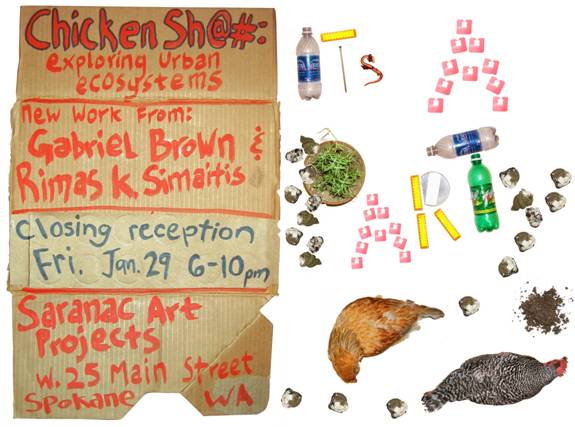 Chicken Sh@#:
exploring urban
ecosystems
new work from:
Gabriel Brown &
Rimas K. Simaitis
Closing reception
Fri. Jan. 29 6-10pm
Saranac Art
Projects
W. 25 Main Street
Spokane WA